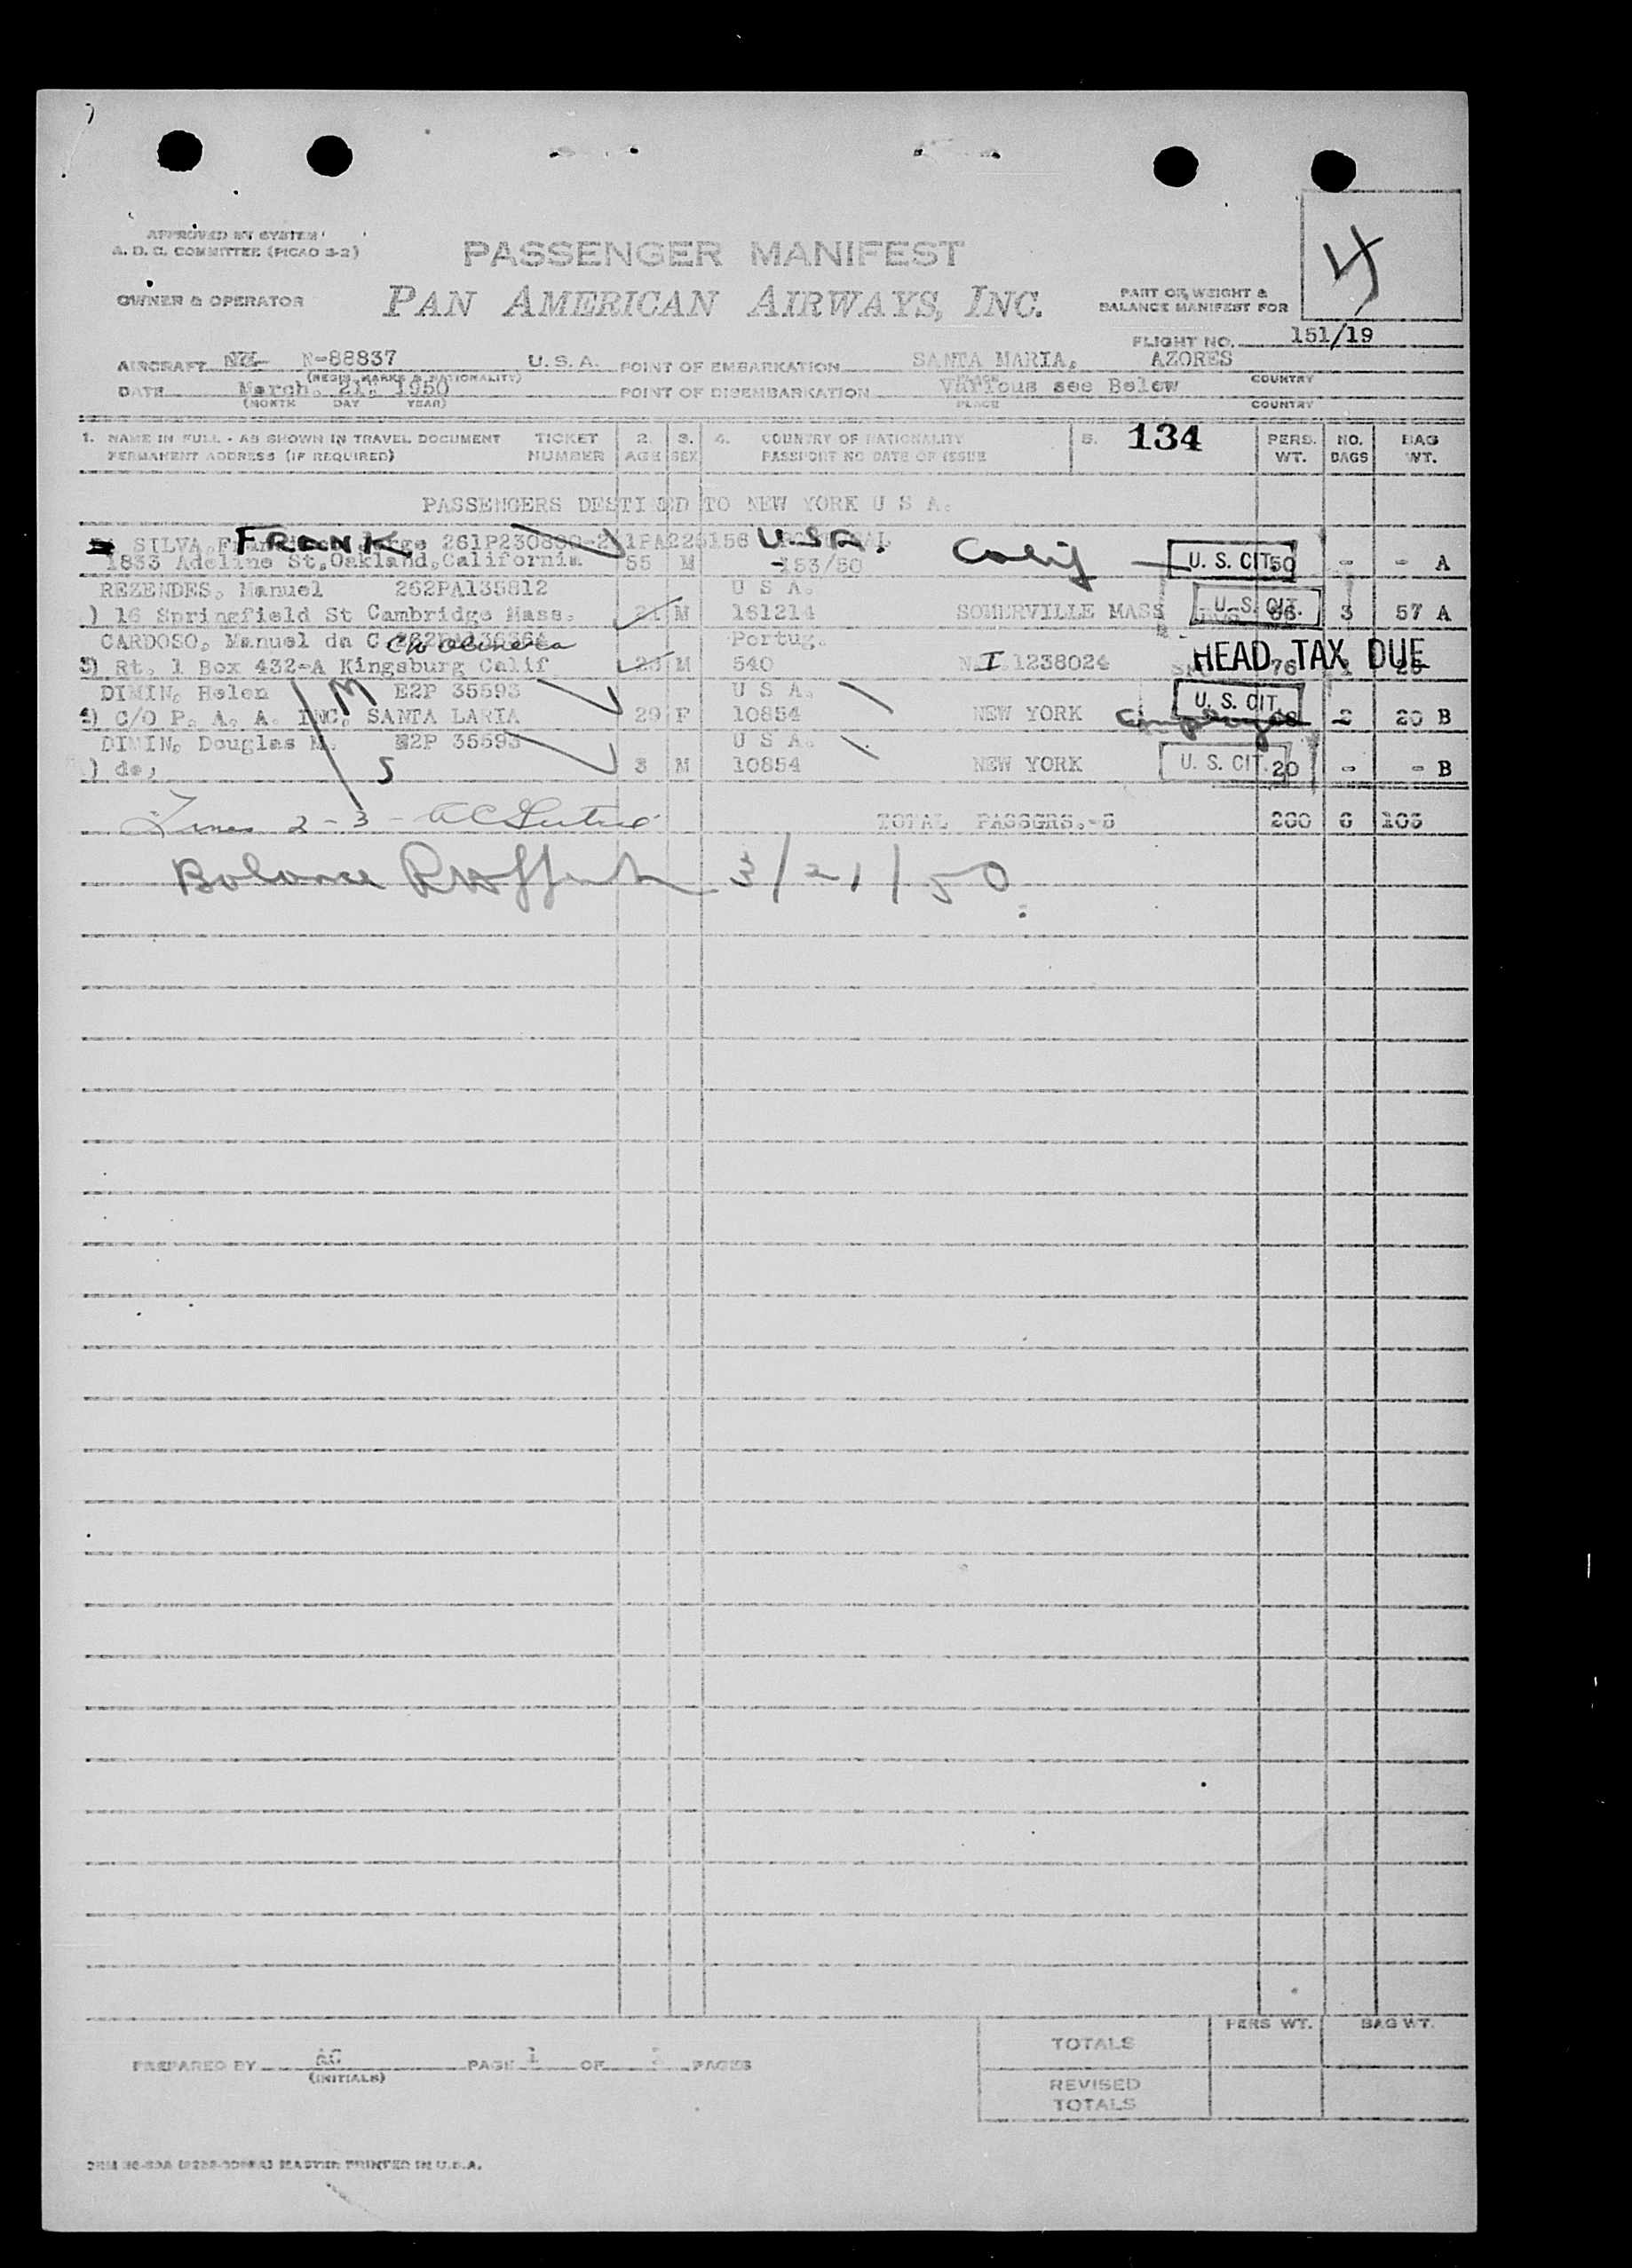 APPROVED BY SYSTEM
A. D. C. COMMITTEE (PICAO S-2)
PASSENGER MANIFEST
4
OWNER & OPERATOR
PAN AMERICAN AIRWAYS, INC.
PART OF WEIGHT &
BALANCE MANIFEST FOR
FLIGHT NO. 151/19
AIRCRAFT N-88837 U. S. A. POINT OF EMBARKATION SANTA MARIA, AZORES
(REGIS. MARKS & NATIONALITY) PLACE COUNTRY
DATE March. 21. 1950 POINT OF DISEMBARKATION Various see Below
(MONTH DAY YEAR) PLACE COUNTRY
1. NAME IN FULL - AS SHOWN IN TRAVEL DOCUMENT TICKET 2. 3. 4. COUNTRY OF NATIONALITY 5. 134 PERS. NO. BAG
PERMANENT ADDRESS (IF REQUIRED) NUMBER AGE SEX PASSPORT NO DATE OF ISSUE WT. BAGS WT.
PASSENGERS DESTINED TO NEW YORK U S A.
SILVA, FRANK U.S.A.
1833 Adeline St, Oakland, California 55 M 153/50 Calif U. S. CIT. 50 - - A
REZENDES, Manuel 262PA135812 U S A.
) 16 Springfield St Cambridge Mass. 21 M 161214 SOMERVILLE MASS U. S. CIT. 3 57 A
CARDOSO, Manuel da C Portug.
3) Rt. 1 Box 432-A Kingsburg Calif M 540 I 1238024 HEAD TAX DUE 76
DIMIN, Helen M E2P 35593 U S A.
4) C/O P. A. A. INC. SANTA MARIA 29 F 10854 NEW YORK U. S. CIT. 2 20 B
DIMIN, Douglas M. E2P 35593 U S A.
) do, S 3 M 10854 NEW YORK U. S. CIT. 20 - - B
Lines 2-3-
TOTAL PASSGRS.-5 260 6 103
Balance 3/21/50
TOTALS PERS WT. BAG WT.
PREPARED BY AC PAGE 1 OF PAGES
(INITIALS)
REVISED
TOTALS
MASTER PRINTED IN U.S.A.